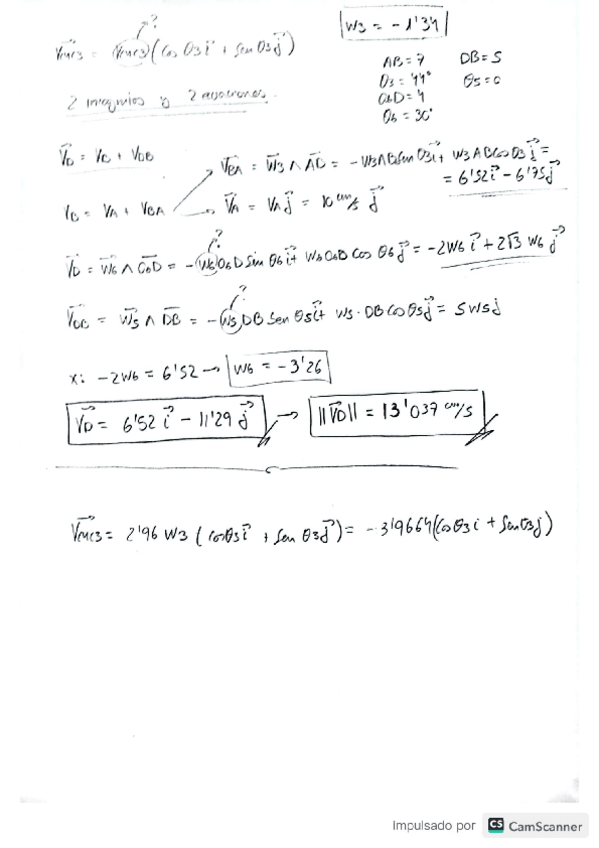 ?
W3 = - 1'34
Vmc3 = Vmc3 (Cos θ3 i + Sen θ3 j)
AB = 7 DB = 5
θ3 = 44° θ5 = 0
O6D = 4
θ6 = 30°
2 incognitas y 2 ecuaciones.
VD = VB + VDB
VBA = W3 ∧ AB = - W3 AB Sen θ3 i + W3 AB Cos θ3 j =
= 6'52 i - 6'75 j
VB = VA + VBA → VA = VA j = 10 cm/s j
?
VD = W6 ∧ O6D = - W6 O6D Sin θ6 i + W6 O6D Cos θ6 j = -2W6 i + 2√3 W6 j
?
VDB = W5 ∧ DB = - W5 DB Sen θ5 i + W5 · DB Cos θ5 j = 5 W5 j
x: -2W6 = 6'52 → W6 = - 3'26
VD = 6'52 i - 11'29 j → ||VD|| = 13'037 cm/s
Vmc3 = 2'96 W3 (Cos θ3 i + Sen θ3 j) = - 3'9664 (Cos θ3 i + Sen θ3 j)
Impulsado por CS CamScanner